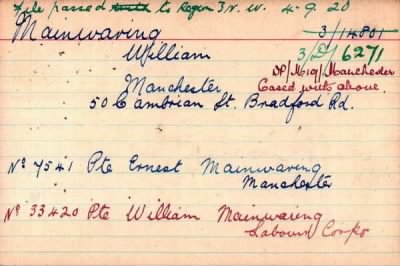 File passed to Region 3 N.W. 4-9-20
Mainwaring
3/14801
William
3/D/6271
DP/Mig/Manchester
Cased with above.
Manchester
50 Cambrian St. Bradford Rd.
No 7541 Pte Ernest Mainwaring
Manchester
No 33420 Pte William Mainwaring
Labour Corps